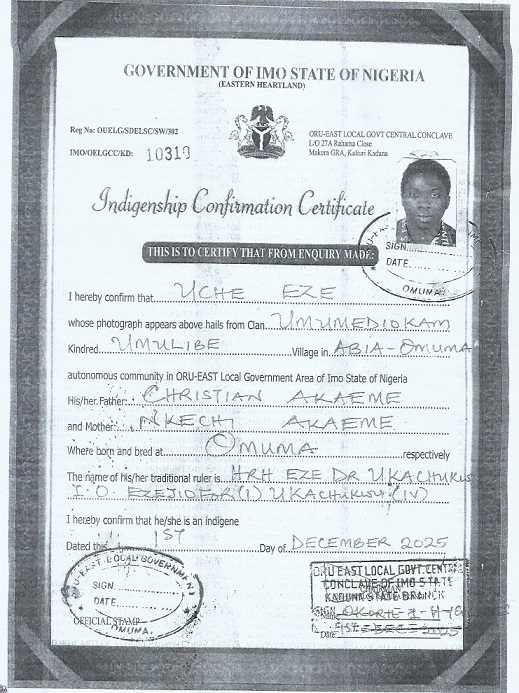 GOVERNMENT OF IMO STATE OF NIGERIA
(EASTERN HEARTLAND)
Reg No: OUELG/SDELSC/SW/302
IMO/OELGCC/KD: 10319
ORU-EAST LOCAL GOVT CENTRAL CONCLAVE
L/O 27A Rahama Close
Makera GRA, Kakuri Kaduna
Indigenship Confirmation Certificate
SIGN
DATE
OMUMA
THIS IS TO CERTIFY THAT FROM ENQUIRY MADE:
I hereby confirm that UCHE EZE
whose photograph appears above hails from Clan UMUMEDIOKAM
Kindred UMULIBE Village in ABIA-OMUMA
autonomous community in ORU-EAST Local Government Area of Imo State of Nigeria
His/her Father: CHRISTIAN AKAEME
and Mother NKECHI AKAEME
Where born and bred at OMUMA respectively
The name of his/her traditional ruler is HRH EZE DR UKACHUKWU
I. O. EZEJIDEFOR (1) UKACHUKWU (IV)
I hereby confirm that he/she is an indigene
Dated this 1ST Day of DECEMBER 2025
ORU-EAST LOCAL GOVERNMENT
SIGN
DATE
OFFICIAL STAMP
OMUMA.
ORU EAST LOCAL GOVT. CENTRAL
CONCLAVE OF IMO STATE
KADUNA STATE BRANCH
SIGN
Name
Date: